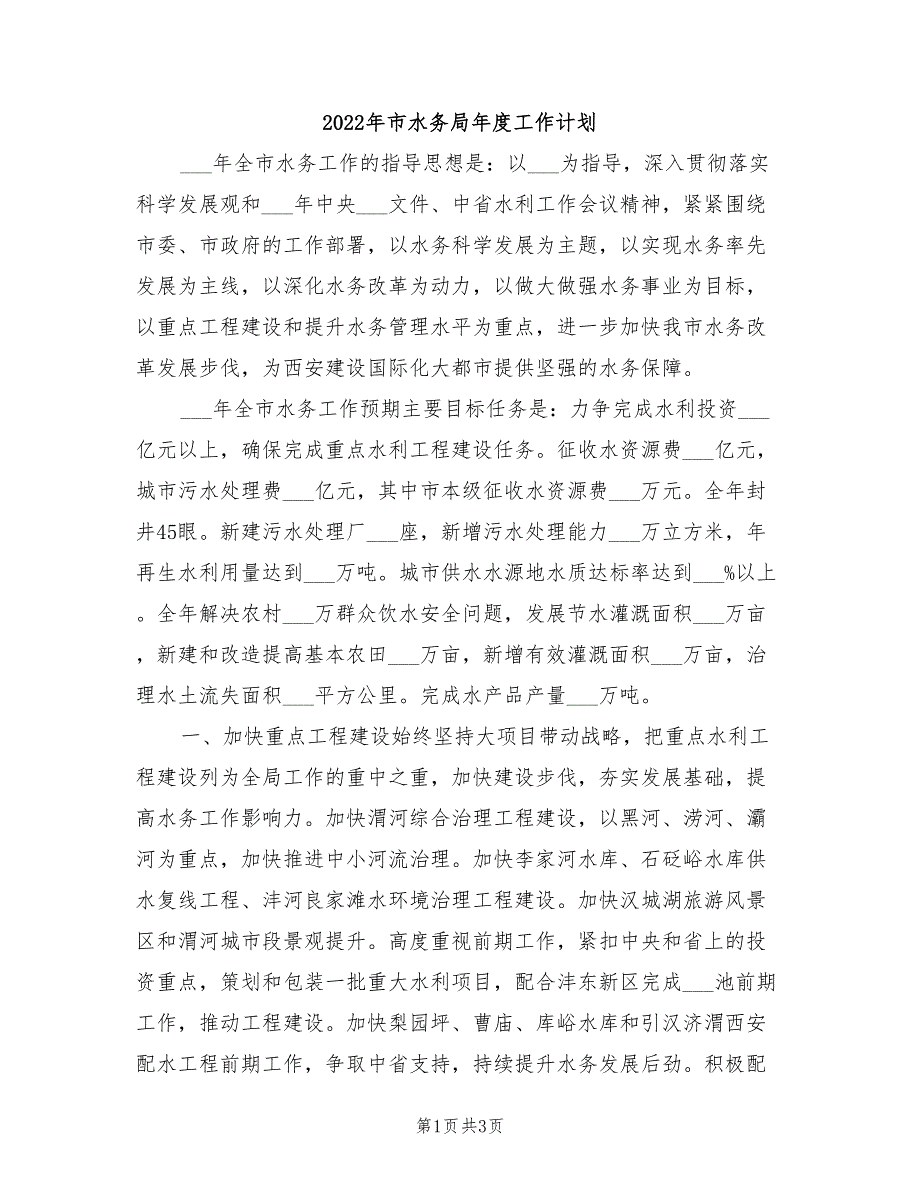 2022年市水务局年度工作计划
___年全市水务工作的指导思想是：以___为指导，深入贯彻落实
科学发展观和___年中央___文件、中省水利工作会议精神，紧紧围绕
市委、市政府的工作部署，以水务科学发展为主题，以实现水务率先
发展为主线，以深化水务改革为动力，以做大做强水务事业为目标，
以重点工程建设和提升水务管理水平为重点，进一步加快我市水务改
革发展步伐，为西安建设国际化大都市提供坚强的水务保障。
___年全市水务工作预期主要目标任务是：力争完成水利投资___
亿元以上，确保完成重点水利工程建设任务。征收水资源费___亿元，
城市污水处理费___亿元，其中市本级征收水资源费___万元。全年封
井45眼。新建污水处理厂___座，新增污水处理能力___万立方米，年
再生水利用量达到___万吨。城市供水水源地水质达标率达到___%以上
。全年解决农村___万群众饮水安全问题，发展节水灌溉面积___万亩
，新建和改造提高基本农田___万亩，新增有效灌溉面积___万亩，治
理水土流失面积___平方公里。完成水产品产量___万吨。
一、加快重点工程建设始终坚持大项目带动战略，把重点水利工
程建设列为全局工作的重中之重，加快建设步伐，夯实发展基础，提
高水务工作影响力。加快渭河综合治理工程建设，以黑河、涝河、灞
河为重点，加快推进中小河流治理。加快李家河水库、石砭峪水库供
水复线工程、沣河良家滩水环境治理工程建设。加快汉城湖旅游风景
区和渭河城市段景观提升。高度重视前期工作，紧扣中央和省上的投
资重点，策划和包装一批重大水利项目，配合沣东新区完成___池前期
工作，推动工程建设。加快梨园坪、曹庙、库峪水库和引汉济渭西安
配水工程前期工作，争取中省支持，持续提升水务发展后劲。积极配
第1页共3页